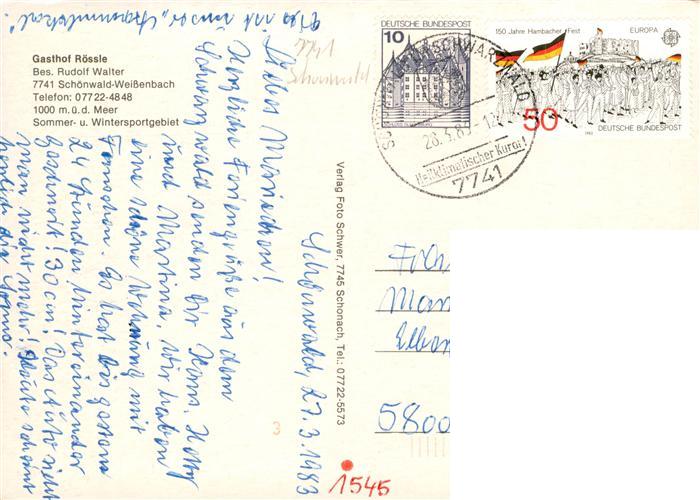 Gasthof Rössle
Bes. Rudolf Walter
7741 Schönwald-Weißenbach
Telefon: 07722-4848
1000 m.ü.d. Meer
Sommer- u. Wintersportgebiet
DEUTSCHE BUNDESPOST
10
150 Jahre Hambacher Fest
EUROPA
CEPT
50
DEUTSCHE BUNDESPOST
1982
28.3.83-12
Heilklimatischer Kurort
7741
Schönwald, 27.3.1983
Liebes Mariechen!
Herzliche Feriengrüße aus dem
Schwarzwald senden Dir
und Martina. Wir haben
eine schöne Wohnung mit
Fernsehen. Es hat bis gestern
24 Stunden hintereinander
geschneit! 30 cm! Das Auto sieht
man nicht mehr! Heute scheint
herrlich die Sonne.
Verlag Foto Schwer, 7745 Schonach, Tel.: 07722-5573
5800
3
1545